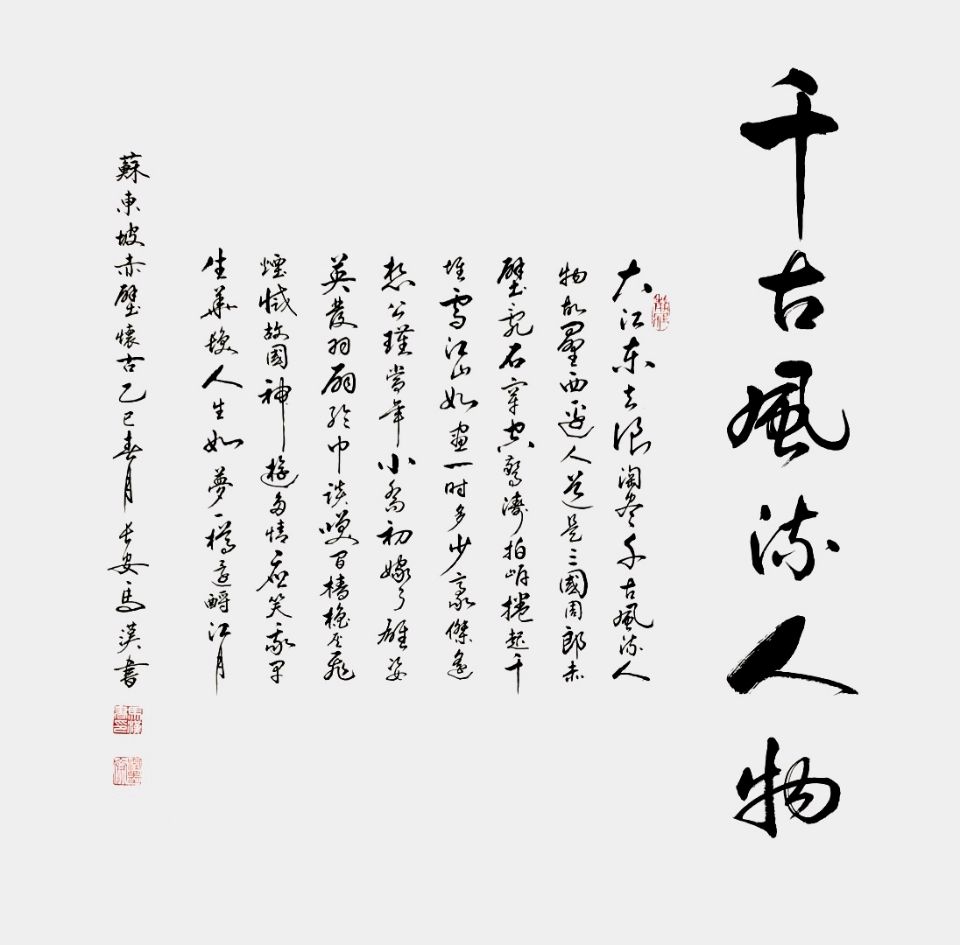 千古風流人物
大江东去浪淘盡千古風流人
物故壘西邊人道是三國周郎赤
壁亂石穿空驚濤拍岸捲起千
堆雪江山如畫一时多少豪傑遙
想公瑾當年小喬初嫁了雄姿
英發羽扇綸巾談咲間檣櫓灰飛
煙滅故國神遊多情應笑我早
生華髮人生如夢一樽還酹江月
蘇東坡赤壁懷古乙巳春月長安馬漢書